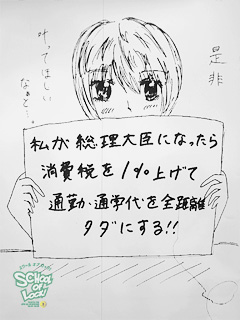 是非
叶ってほしい
なぁと…。
私が総理大臣になったら
消費税を1%上げて
通勤・通学代を全距離
タダにする!!
SCHOOL
OF
LOCK!